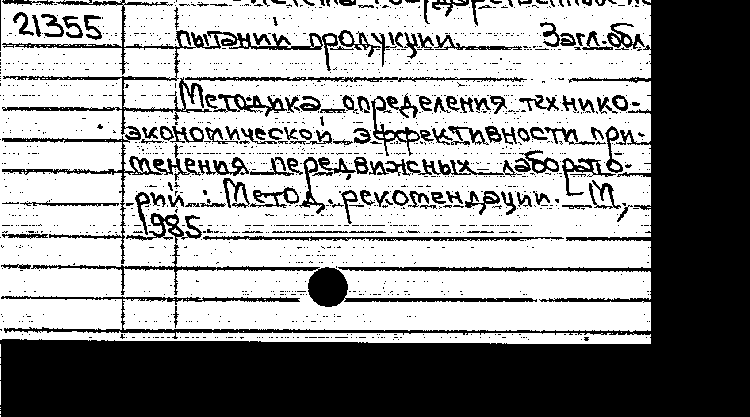 21355 пытаний продукции. Загл.обл.
Методика определения технико-
экономической эффективности при-
менения передвижных лаборато-
рий : Метод. рекомендации. – М,
1985.